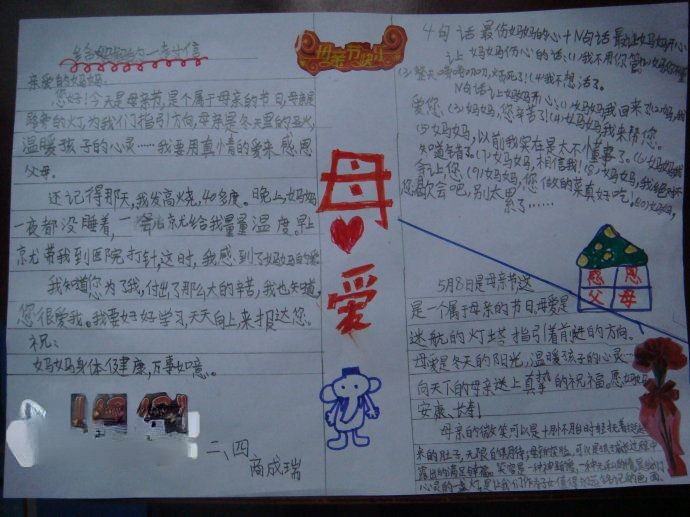 给妈妈的一封信
亲爱的妈妈:
您好!今天是母亲节,是个属于母亲的节日,母亲是
的灯,为我们指引方向,母亲是冬天里的阳光,
温暖孩子的心灵……我要用真情的爱来感恩
父母。
还记得那天,我发高烧,40多度。晚上,妈妈
一夜都没睡着,一会儿就给我量量温度。早上
就带我到医院打针,这时,我感到了妈妈的爱
我知道您为了我,付出了那么大的辛苦,我也知道,
您很爱我。我要好好学习,天天向上,来报达您。
祝:
妈妈身体健康,万事如意。
二、四
商成瑞
母亲节快乐
母
爱
4句话最伤妈妈的心+N句话最让妈妈开心
让妈妈伤心的话:(1)我不用你管
(3)整天唠唠叨叨,烦死了!(4)我不想活了。
N句话让妈妈开心:(1)妈妈我回来了(2)妈妈,我
爱您。(3)妈妈,您辛苦了!(4)妈妈,我来帮您。
(5)妈妈,以前我实在是太不懂事了。(6)妈妈我
知道错了。(7)妈妈,相信我!(8)妈妈,我
会让您 (9)妈妈,您做的菜真好吃。(10)妈妈,
您歇会吧,别太累了……
感 恩
父 母
5月8日是母亲节,这
是一个属于母亲的节日,母爱是
迷航的灯塔指引着前进的方向。
母爱是冬天的阳光,温暖孩子的心灵…
向天下的母亲送上真挚的祝福。愿妈妈
安康、长寿!
母亲的微笑可以是十月怀胎时轻抚着
来的肚子,无限
露出的满足
心灵的一盏灯,是让我们